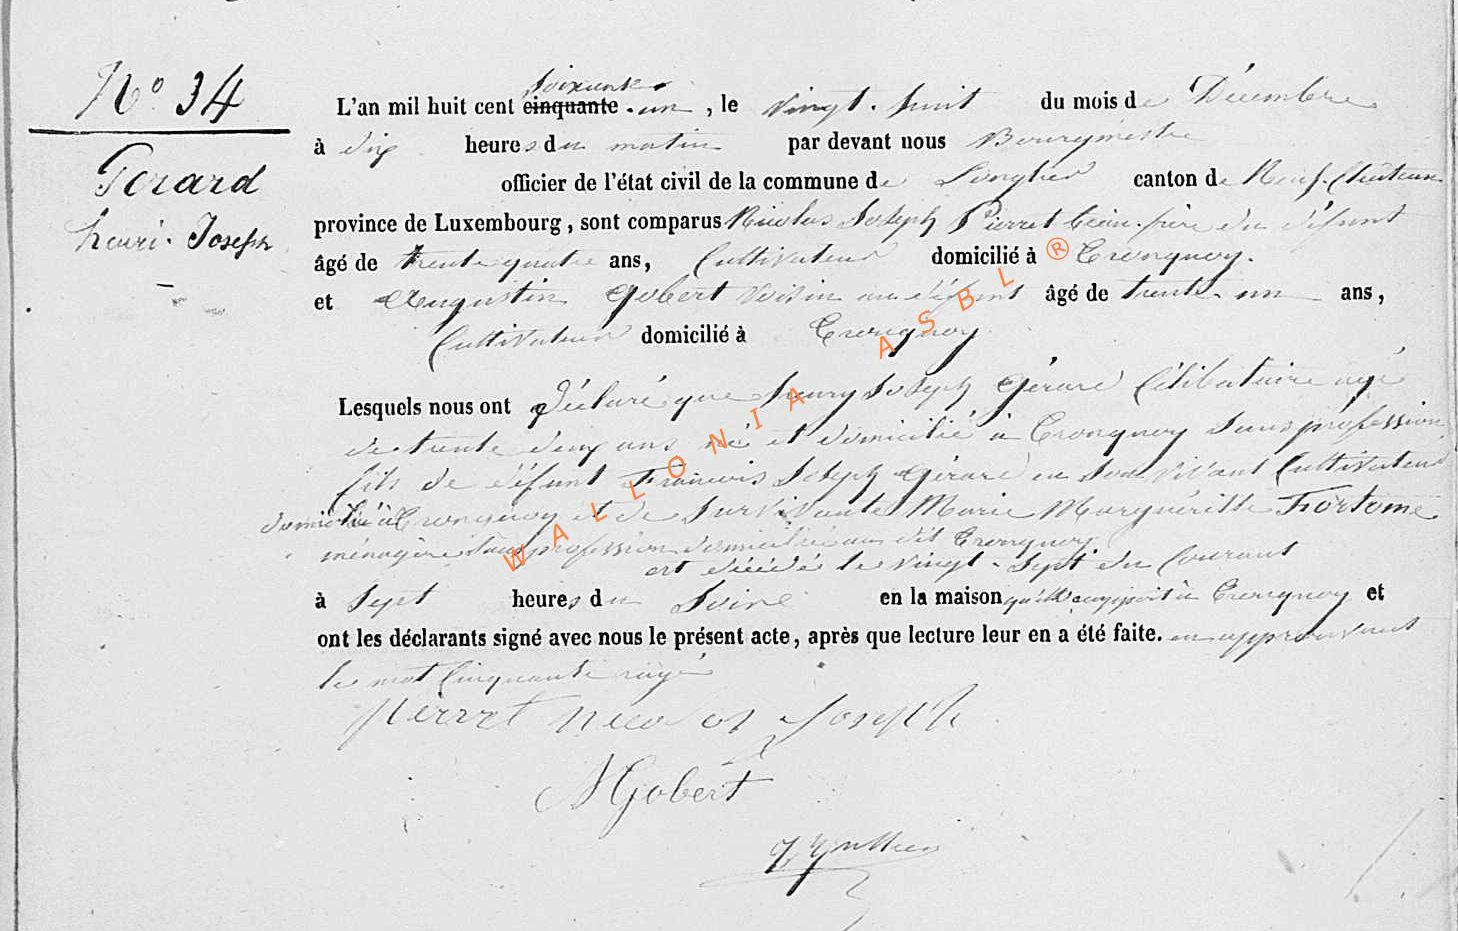 N° 34
Gerard
henri-Joseph
Soixante
L'an mil huit cent cinquante-un, le vingt-huit du mois de Décembre
à dix heures du matin par devant nous Bourgmestre
officier de l'état civil de la commune de Longlier canton de Neuf-Château
province de Luxembourg, sont comparus Nicolas Joseph Pierret beau-frère du défunt
âgé de trente quatre ans, Cultivateur domicilié à Tronquoy.
et Augustin Gobert voisin au défunt âgé de trente-un ans,
Cultivateur domicilié à Tronquoy
Lesquels nous ont déclaré que henry Joseph Gérard Célibataire agé
de trente deux ans né et domicilié à Tronquoy Sans profession
fils de défunt François Joseph Gérard en son vivant Cultivateur
domicilié à Tronquoy et de Survivante Marie Marguéritte Fortomé
ménagère Sans profession domiciliée au dit Tronquoy
est décédé le vingt-Sept du Courant
à Sept heures du Soire en la maison qu'il occupoit à Tronquoy et
ont les déclarants signé avec nous le présent acte, après que lecture leur en a été faite. en approuvant
le mot Cinquante rayé
pierret nicolas Joseph
A Gobert
WALLONIA ASBL ®